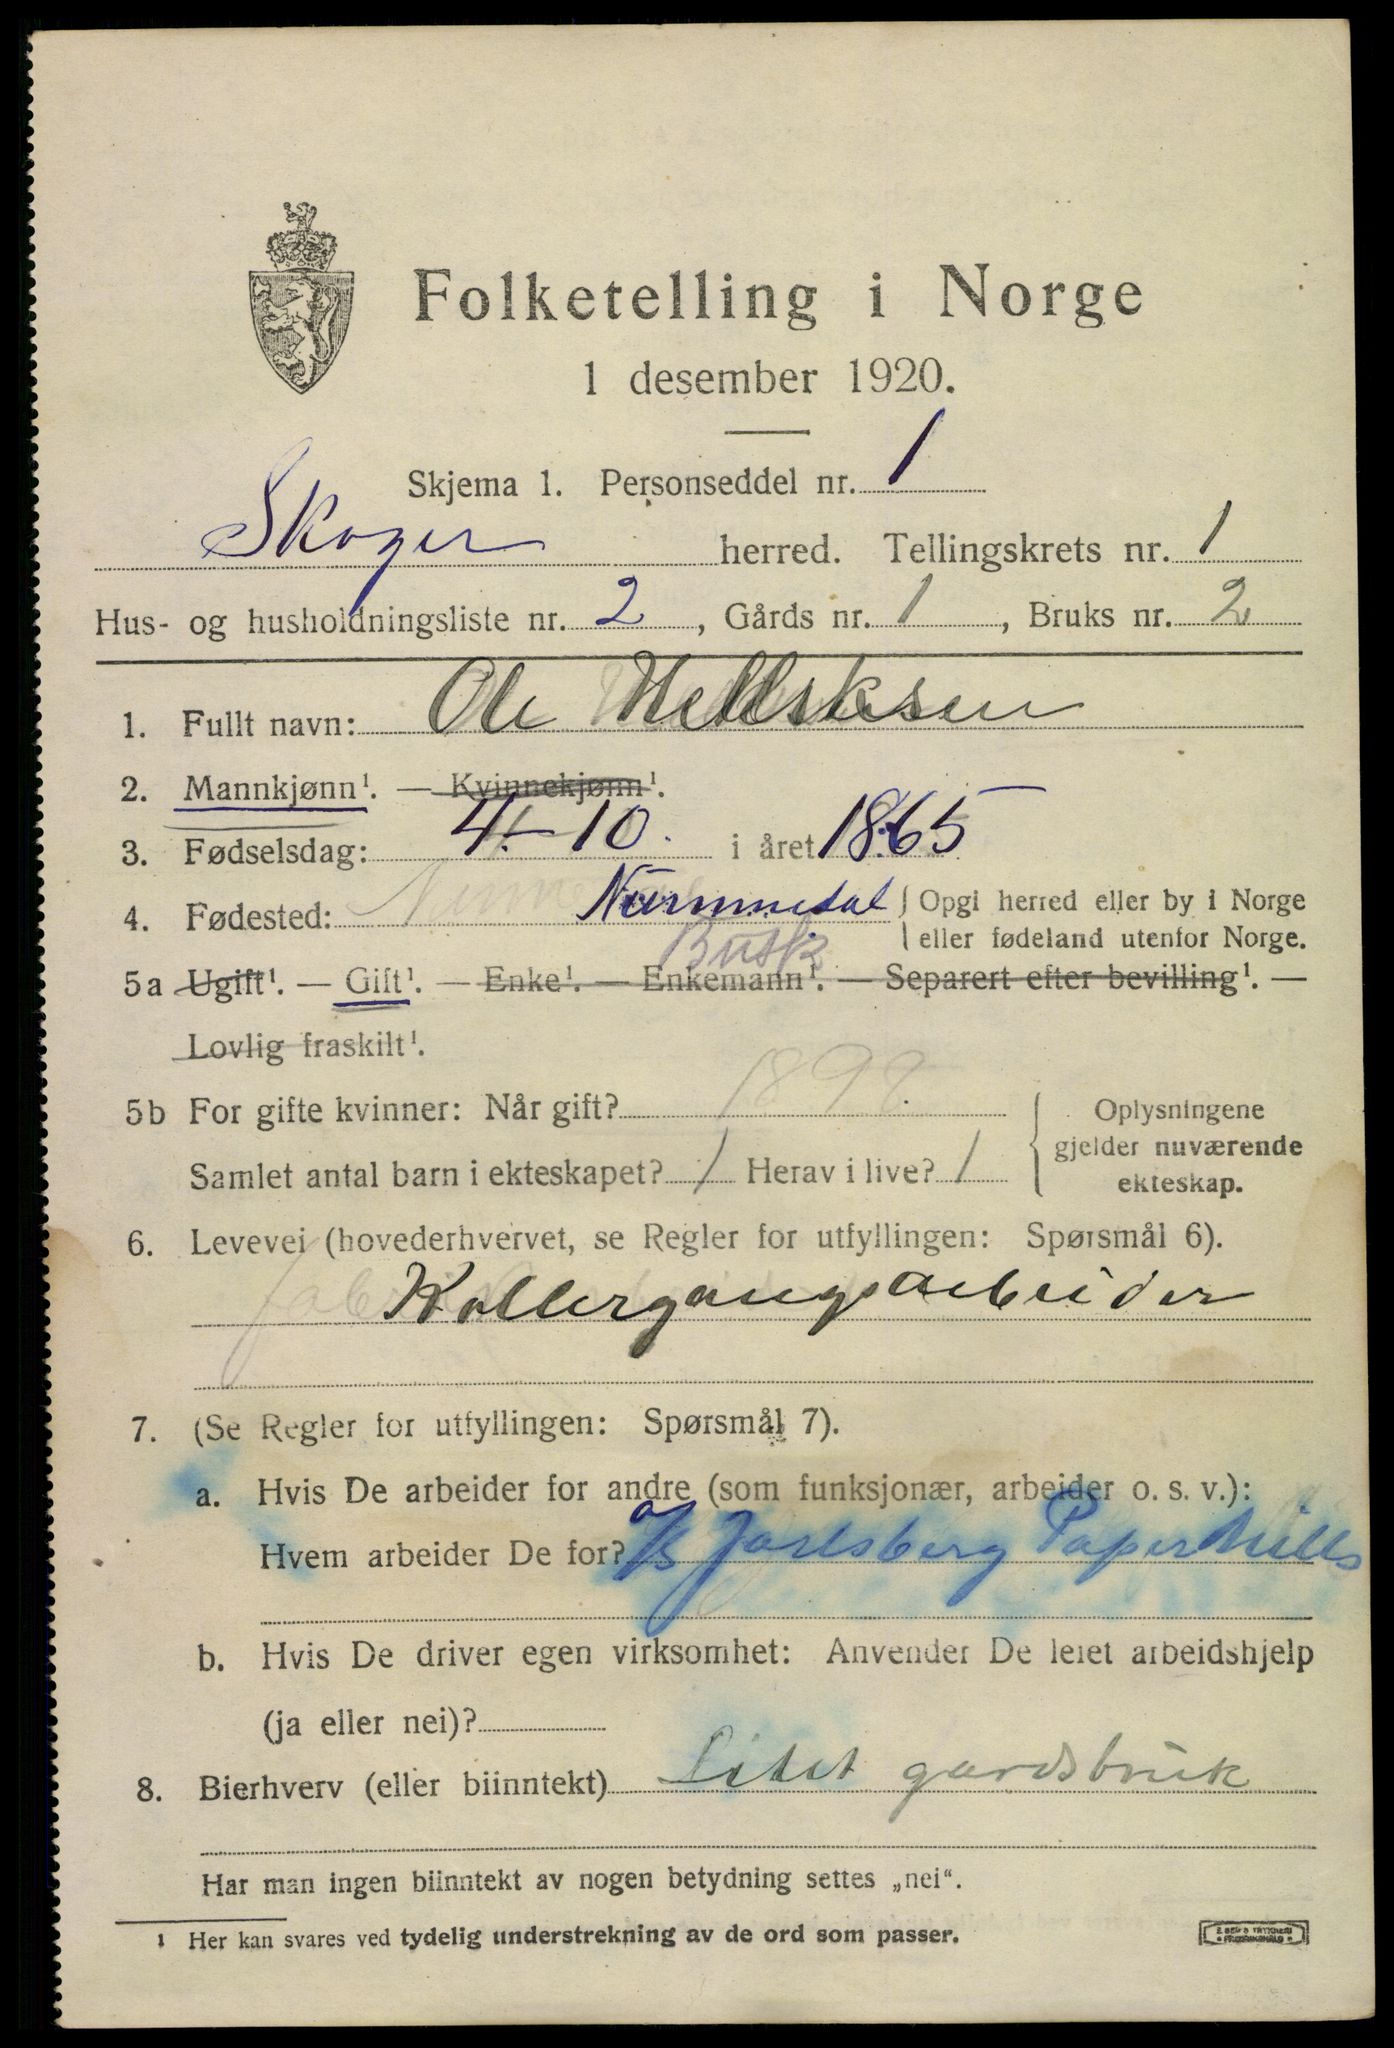 Folketelling i Norge
1 desember 1920.
Skjema 1. Personseddel nr. 1
Skoger herred. Tellingskrets nr. 1
Hus- og husholdningsliste nr. 2, Gårds nr. 1, Bruks nr. 2
1. Fullt navn: Ole
2. Mannkjønn¹. — Kvinnekjønn¹.
3. Fødselsdag: 4. – 10. i året 1865
4. Fødested: Nummedal { Opgi herred eller by i Norge
eller fødeland utenfor Norge.
Busk
5a Ugift¹. — Gift¹. — Enke¹. — Enkemann¹. — Separert efter bevilling¹. —
Lovlig fraskilt¹.
5b For gifte kvinner: Når gift? 1898
Samlet antal barn i ekteskapet? 1 Herav i live? 1
{ Oplysningene
gjelder nuværende
ekteskap.
6. Levevei (hovederhvervet, se Regler for utfyllingen: Spørsmål 6).
Kollergangsarbeider
7. (Se Regler for utfyllingen: Spørsmål 7).
a. Hvis De arbeider for andre (som funksjonær, arbeider o. s. v.):
Hvem arbeider De for? a/s Jarlsberg Paper Mills
b. Hvis De driver egen virksomhet: Anvender De leiet arbeidshjelp
(ja eller nei)?
8. Bierhverv (eller biinntekt) Litet gardsbruk
Har man ingen biinntekt av nogen betydning settes „nei“.
¹ Her kan svares ved tydelig understrekning av de ord som passer.